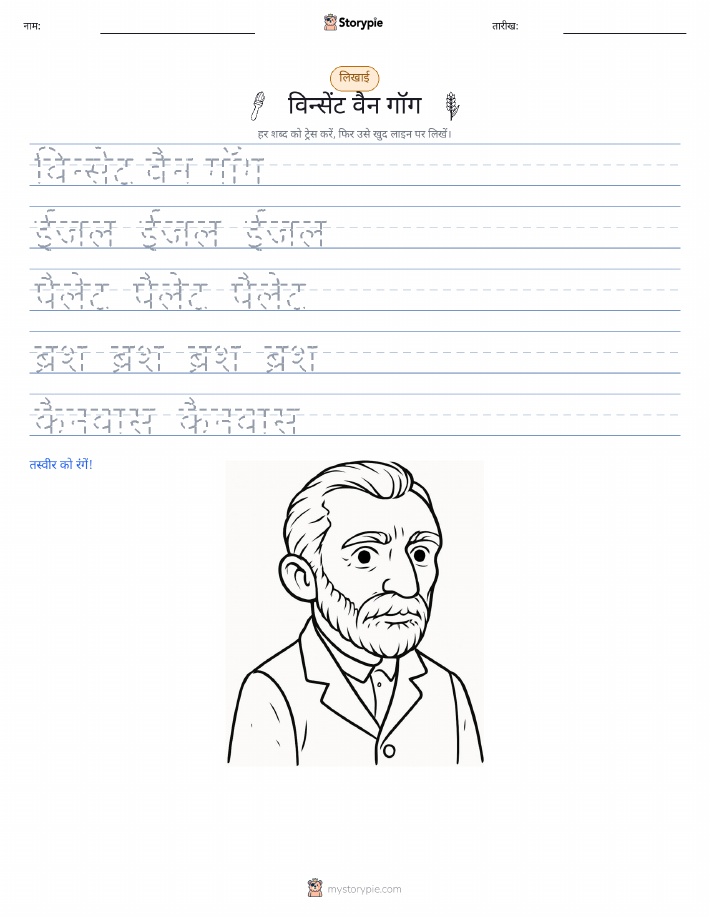 नाम:
Storypie
तारीख:
लिखाई
विन्सेंट वैन गॉग
हर शब्द को ट्रेस करें, फिर उसे खुद लाइन पर लिखें।
विन्सेंट वैन गॉग
ईजल ईजल ईजल
पैलेट पैलेट पैलेट
ब्रश ब्रश ब्रश ब्रश
कैनवास कैनवास
तस्वीर को रंगें!
mystorypie.com